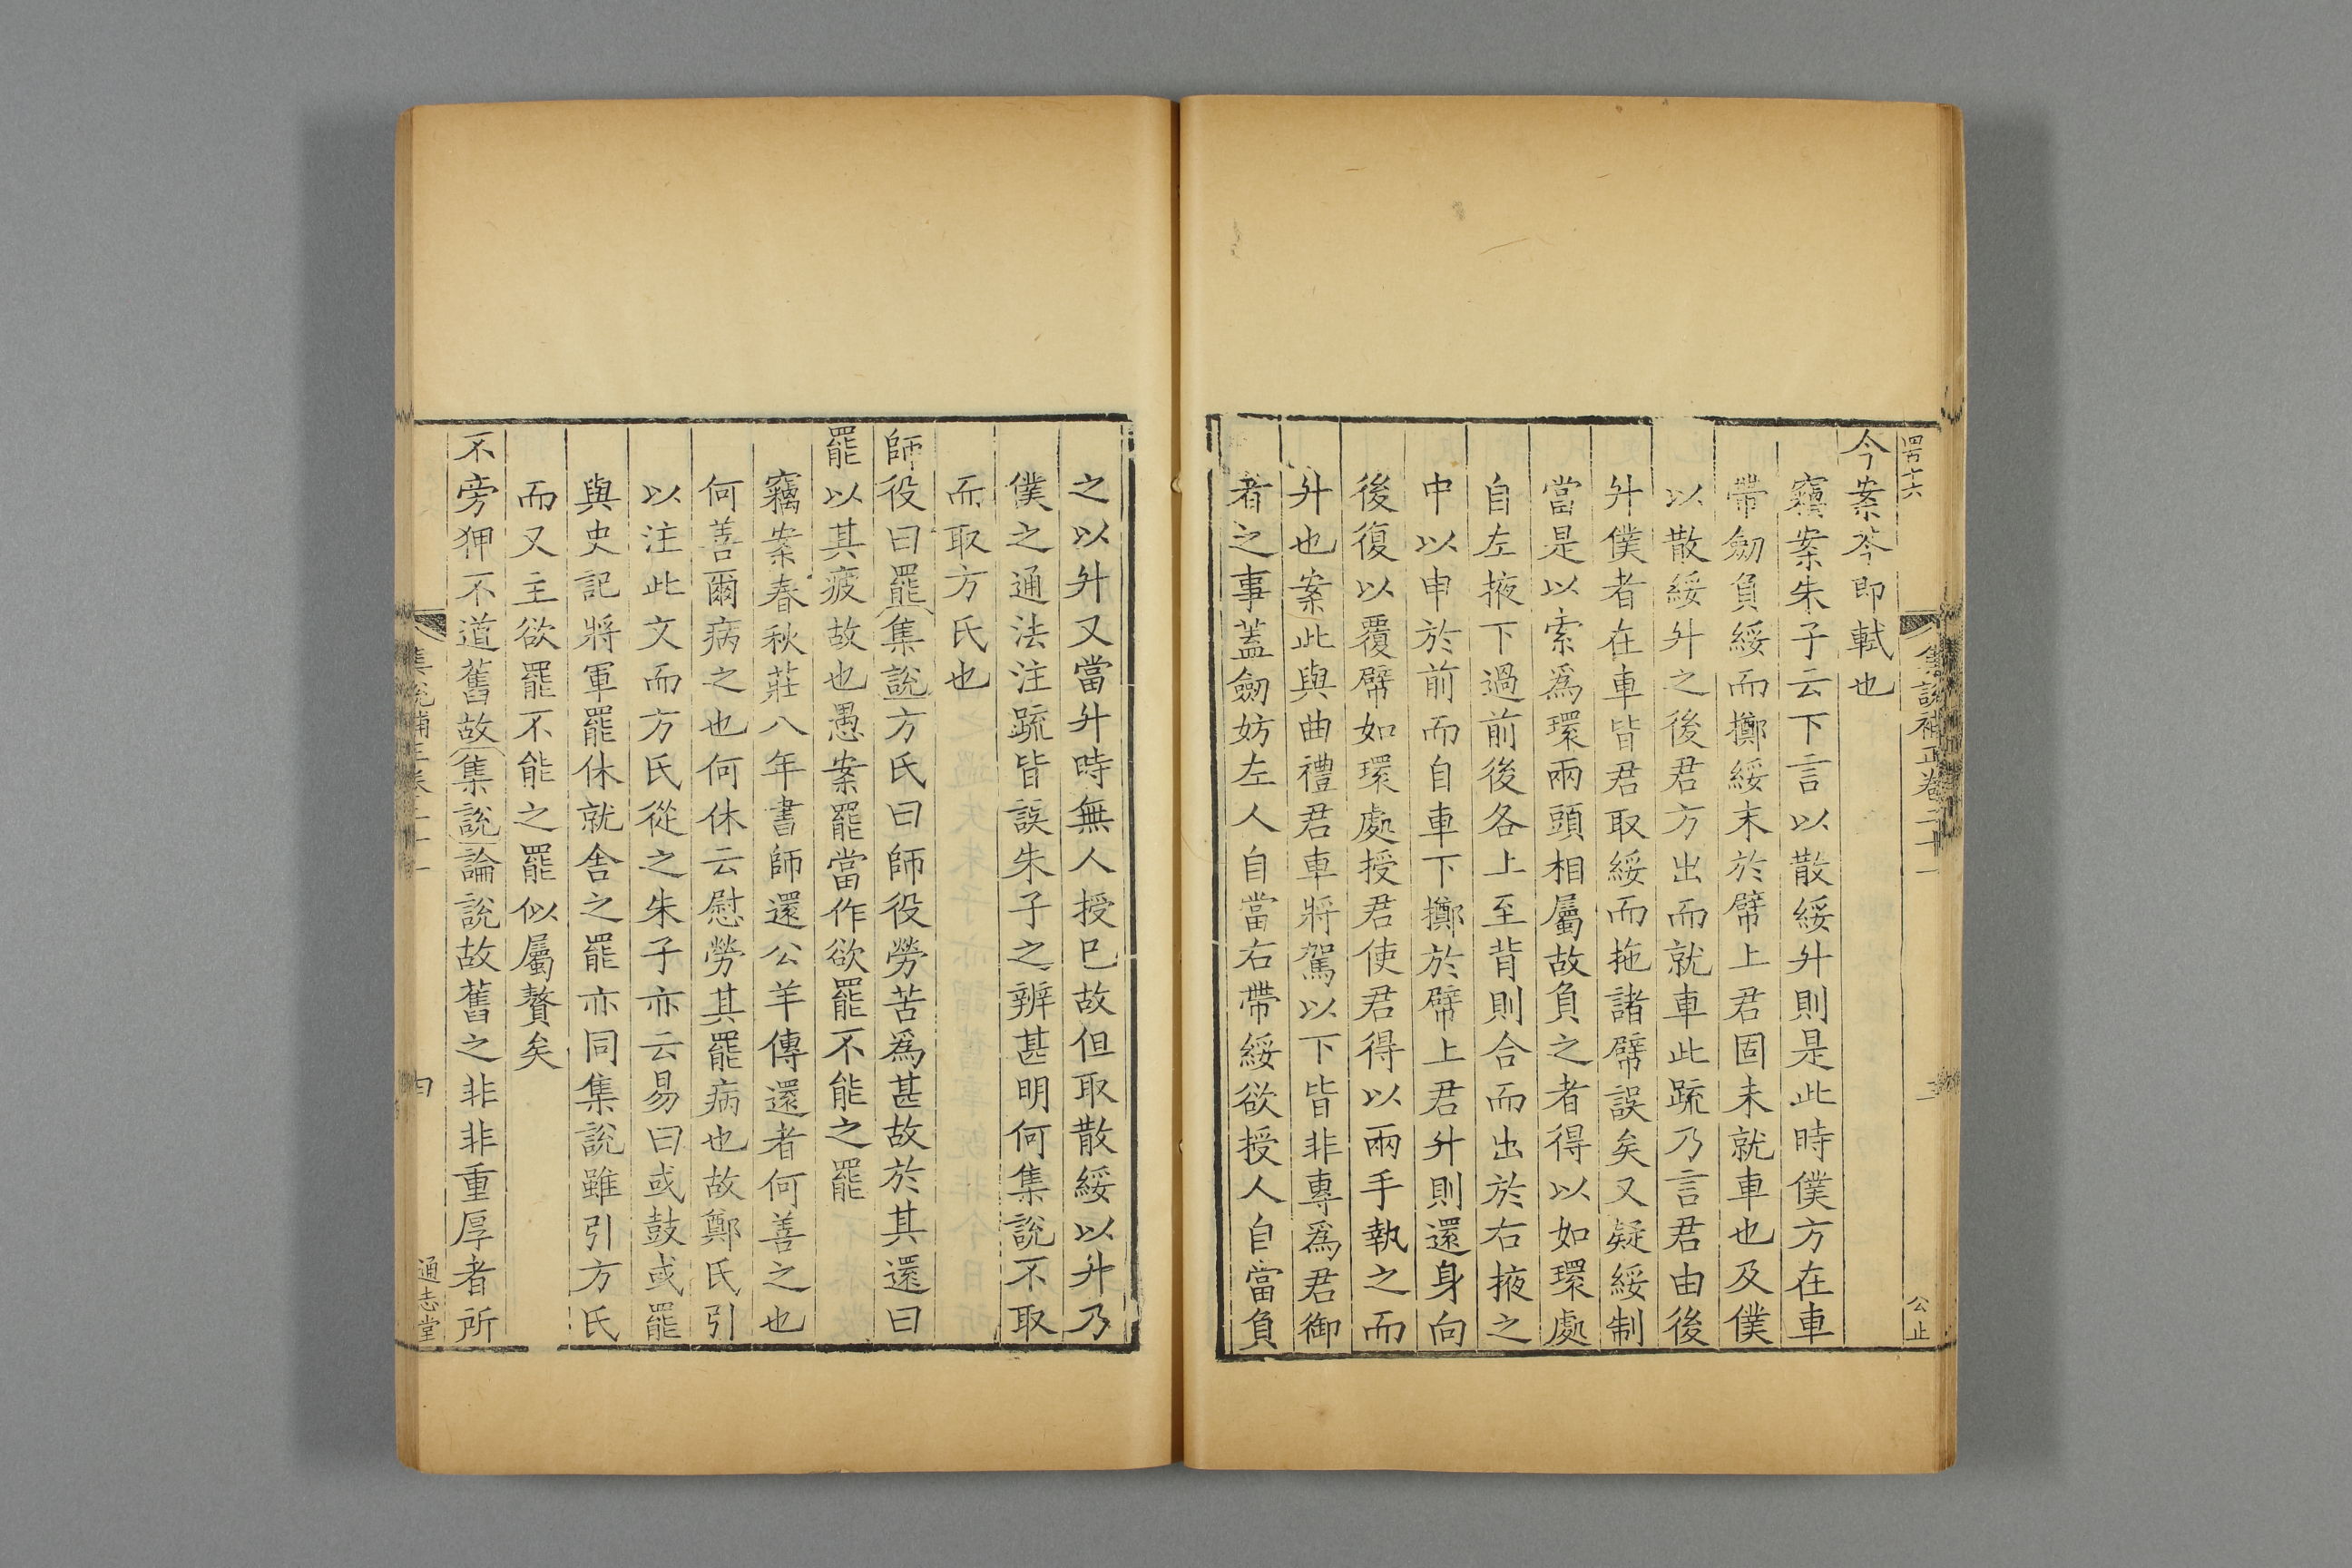 四百十六
集說補正卷二十一
三
公止
今案苓即軾也
竊案朱子云下言以散綏升則是此時僕方在車
帶劒負綏而擲綏末於幦上君固未就車也及僕
以散綏升之後君方出而就車此疏乃言君由後
升僕者在車皆君取綏而拖諸幦誤矣又疑綏制
當是以索爲環兩頭相屬故負之者得以如環處
自左掖下過前後各上至背則合而出於右掖之
中以申於前而自車下擲於幦上君升則還身向
後復以覆幦如環處授君使君得以兩手執之而
升也案此與曲禮君車將駕以下皆非專爲君御
者之事蓋劒妨左人自當右帶綏欲授人自當負
之以升又當升時無人授巳故但取散綏以升乃
僕之通法注疏皆誤朱子之辨甚明何集說不取
而取方氏也
師役曰罷集說方氏曰師役勞苦爲甚故於其還曰
罷以其疲故也愚案罷當作欲罷不能之罷
竊案春秋莊八年書師還公羊傳還者何善之也
何善爾病之也何休云慰勞其罷病也故鄭氏引
以注此文而方氏從之朱子亦云易曰或鼓或罷
與史記將軍罷休就舍之罷亦同集說雖引方氏
而又主欲罷不能之罷似屬贅矣
不旁狎不道舊故集說論說故舊之非非重厚者所
集說補正卷二十一
四
通志堂